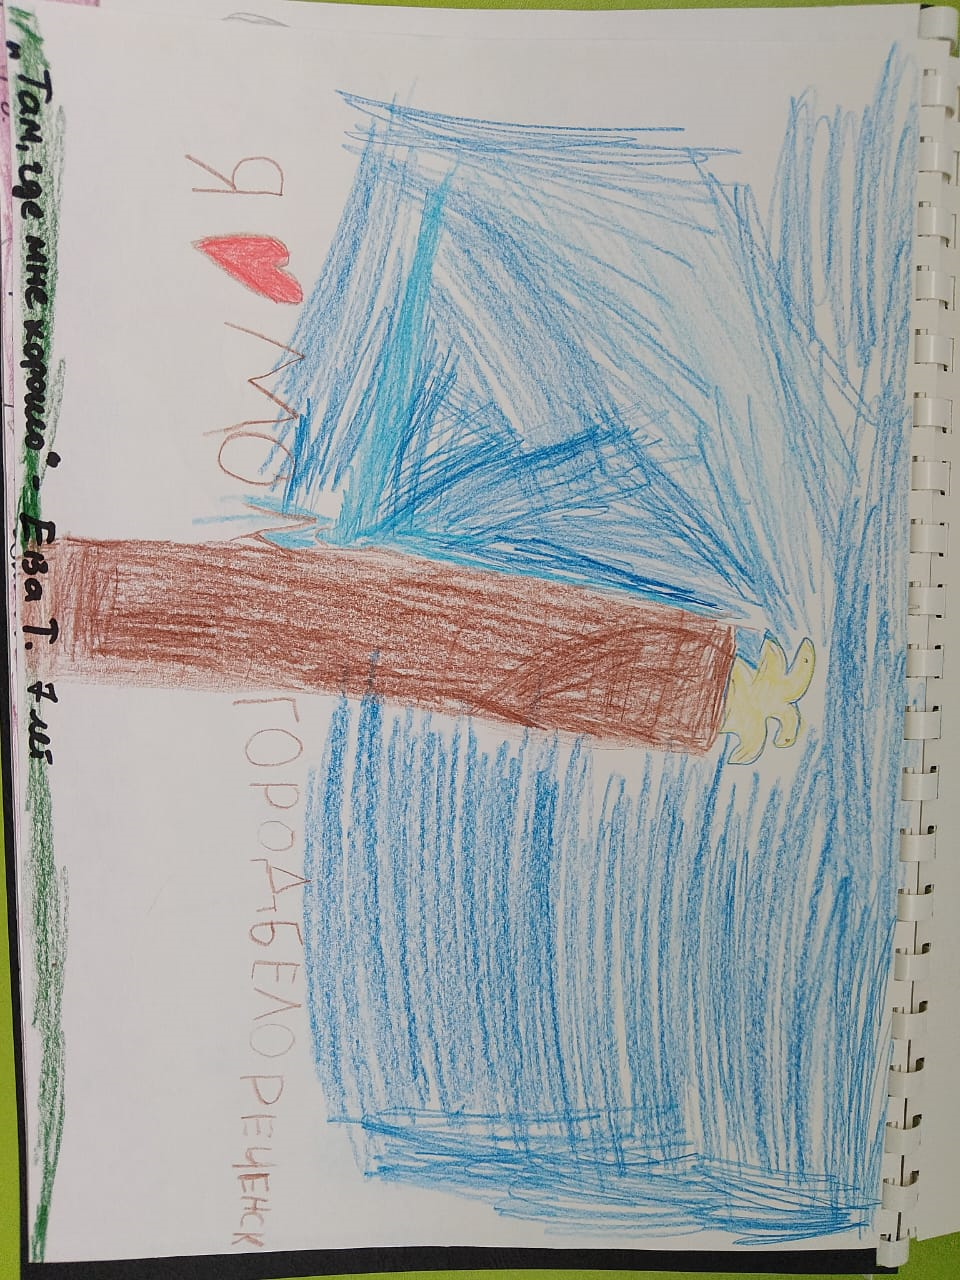 Я ❤ МОЙ ГОРОД БЕЛОРЕЧЕНСК
„Там, где мне хорошо". Ева Т. 7 лет